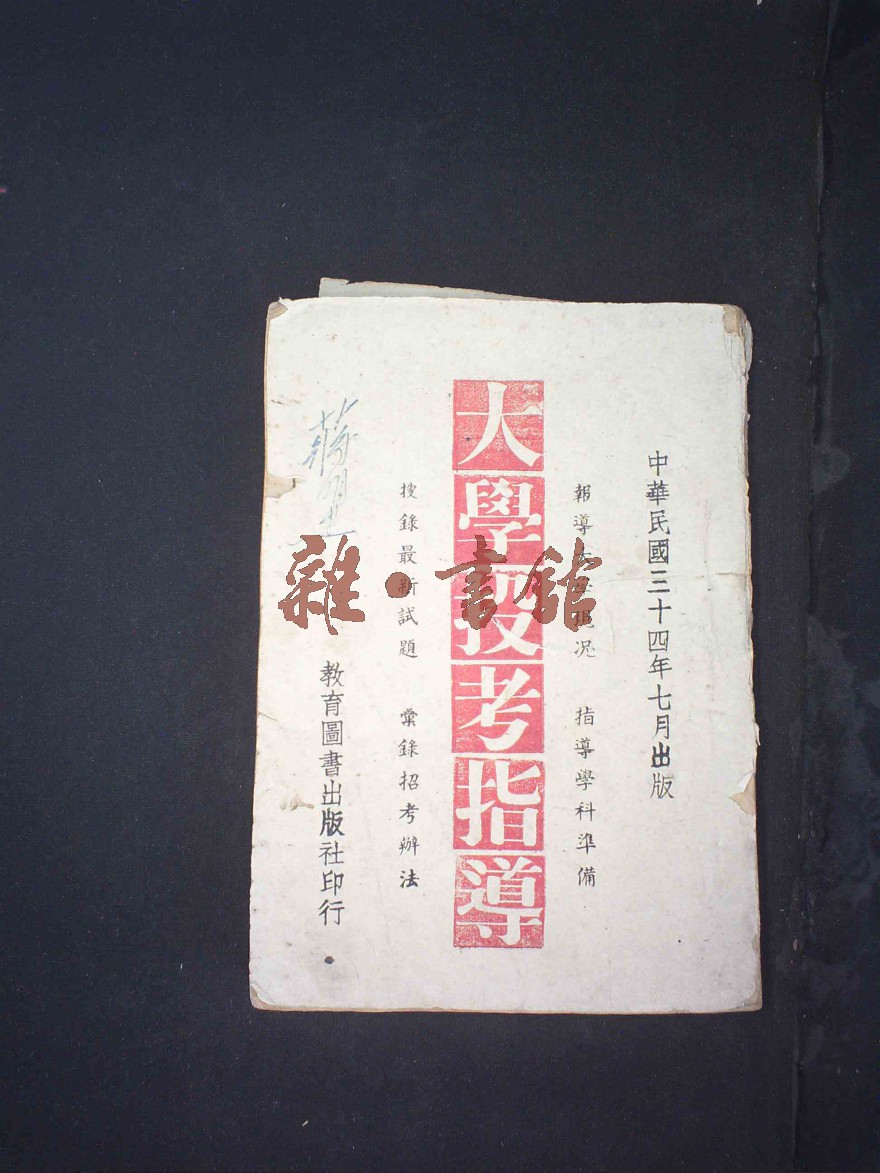 中華民國三十四年七月出版
報導大學概況 指導學科準備
大學投考指導
搜錄最新試題 彙錄招考辦法
教育圖書出版社印行
雜·書館